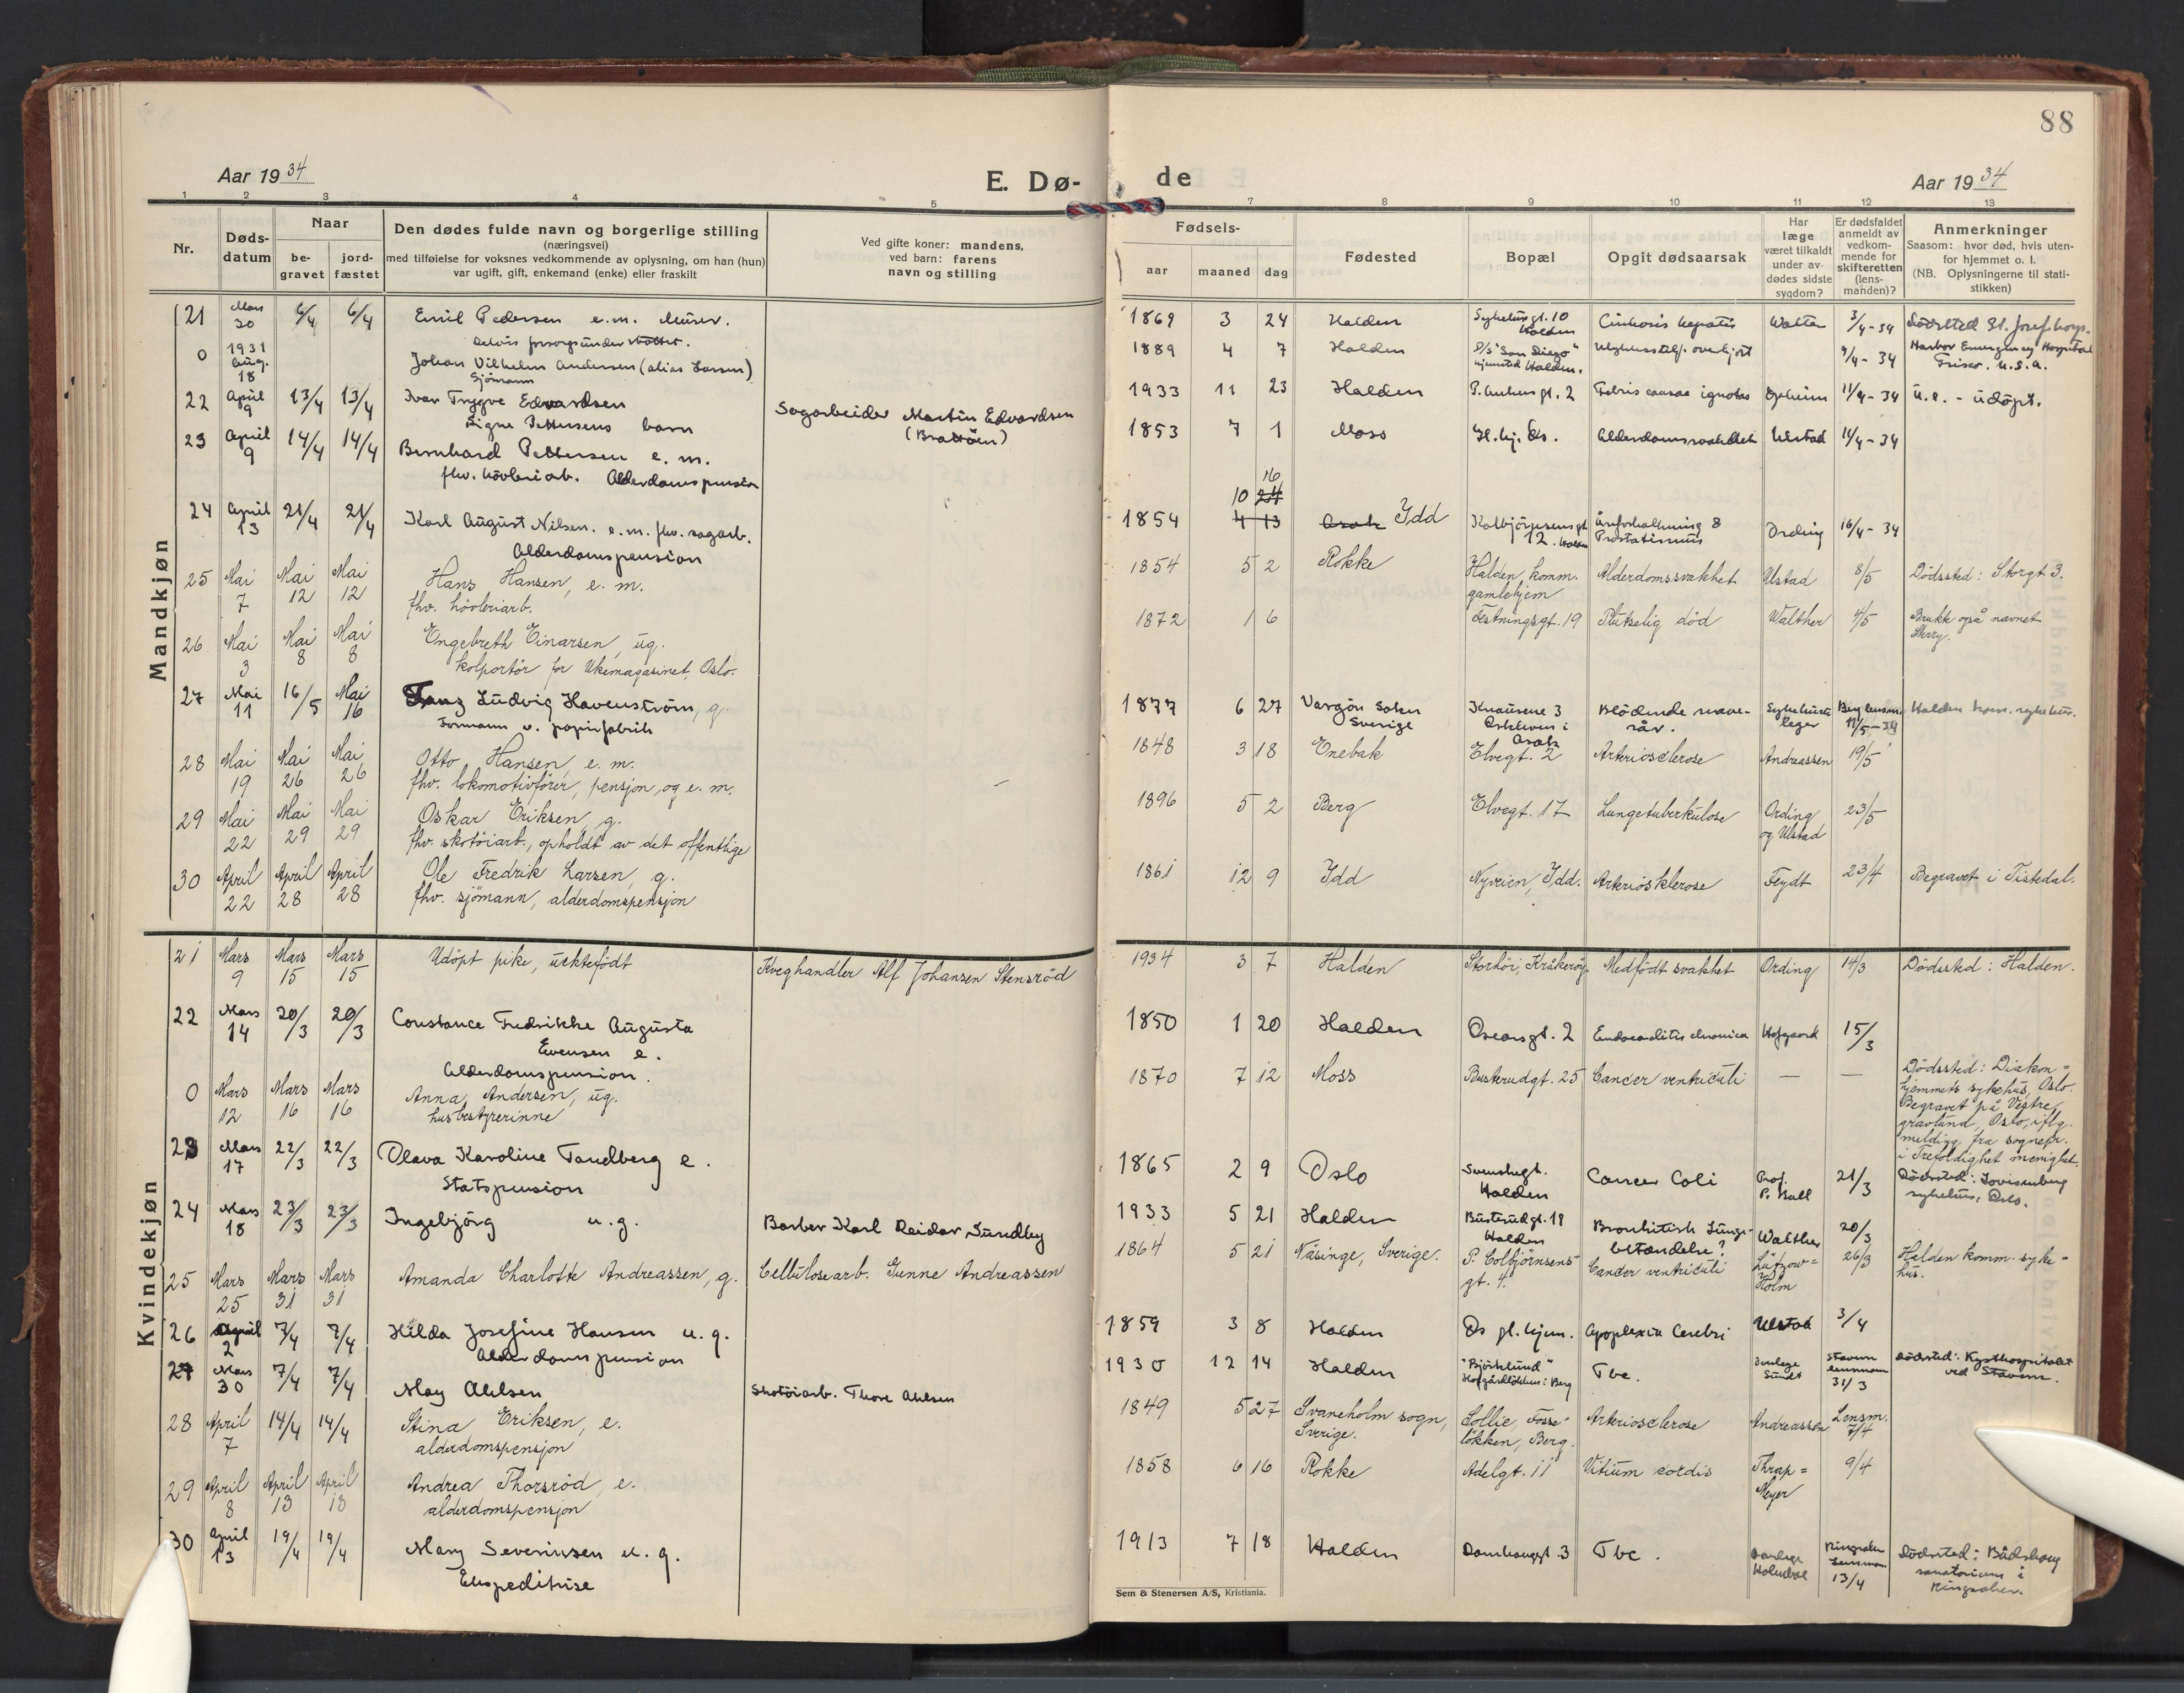 88
Aar 1934 E. Dø- de Aar 1934
1 2 3 4 5 7 8 9 10 11 12 13
Nr. Døds-datum Naar be-gravet jord-fæstet Den dødes fulde navn og borgerlige stilling (næringsvei) med tilføielse for voksnes vedkommende av oplysning, om han (hun) var ugift, gift, enkemand (enke) eller fraskilt Ved gifte koner: mandens, ved barn: farens navn og stilling Fødsels- aar maaned dag Fødested Bopæl Opgit dødsaarsak Har læge været tilkaldt under av-dødes sidste sygdom? Er dødsfaldet anmeldt av vedkom-mende for skifteretten (lens-manden)? Anmerkninger Saasom: hvor død, hvis uten-for hjemmet o. l. (NB. Oplysningerne til stati-stikken)
Mandkjøn
21 Mars 30 6/4 6/4 Emil Pedersen e.m. Murer. 1869 3 24 Halden Sykehusgt. 10 Halden Cirrhosis hepatis 3/4-34 Dødssted St. Josef hosp.
0 1931 Aug. 18 Johan Vilhelm Andersen (alias Larsen) Sjömann 1889 4 7 Halden D/S "San Diego" hjemsted Halden. 9/4-34 Harbor Emergency Hospital Frisco. U.S.A.
22 April 9 13/4 13/4 Ivar Trygve Edvardsen Signe Pettersens barn Sagarbeider Martin Edvardsen (Brattöen) 1933 11 23 Halden P. Ankers gt. 2 Febris causae ignotae Opheim 11/4-34 u.e. - udöpt.
23 April 9 14/4 14/4 Bernhard Pettersen e. m. fhv. hövleriarb. Alderdomspension 1853 7 1 Moss Gl.hj. Os. Alderdomssvakhet Ulstad 11/4-34
24 April 13 21/4 21/4 Karl August Nilsen. e.m. fhv. sagarb. Alderdomspension 1854 4 13 10 24 16 Asak Idd Kolbjörnsensgt 12. Halden Prostatismus Ording 16/4-34
25 Mai 7 Mai 12 Mai 12 Hans Hansen, e. m. fhv. hövleriarb. 1854 5 2 Rokke Halden komm. gamlehjem Alderdomssvakhet Ulstad 8/5 Dödssted: Storgt 3.
26 Mai 3 Mai 8 Mai 8 Engebreth Einarsen, ug. kolportör for Ukemagasinet, Oslo. 1872 1 6 Festningsgt. 19 Plutselig död Walther 4/5 Brukk også navnet Skrey.
27 Mai 11 16/5 Mai 16 Franz Ludvig Havenström, g. Formann v. papirfabrik 1877 6 27 Vargön Sokn Sverige Knausene 3 Asak Blödende mave-sår. Sykehuset leger 11/5-34 Halden kom. sykehus.
28 Mai 19 Mai 26 Mai 26 Otto Hansen, e. m. fhv. lokomotivförer, pensjon, og e. m. 1848 3 18 Enebak Elvegt. 2 Arteriosclerose Andreassen 19/5
29 Mai 22 Mai 29 Mai 29 Oskar Eriksen, g. fhv. skotöiarb., opholdt av det offentlige 1896 5 2 Berg Elvegt. 17 Lungetuberkulose Ording og Ulstad 23/5
30 April 22 April 28 April 28 Ole Fredrik Larsen, g. fhv. sjömann, alderdomspensjon 1861 12 9 Idd Nyveien, Idd. Arteriosklerose Feydt 23/4 Begravet i Tistedal.
Kvindekjøn
21 Mars 9 Mars 15 Mars 15 Udöpt pike, uektefödt Kveghandler Alf Johansen Stensröd 1934 3 7 Halden Storhöi, Kråkeröy Medfödt svakhet Ording 14/3 Dödssted: Halden.
22 Mars 14 20/3 20/3 Constance Fredrikke Augusta Evensen e. Alderdomspension. 1850 1 20 Halden Oscarsgt. 2 Endocarditis chronica Hofgaard 15/3
0 Mars 12 Mars 16 Mars 16 Anna Andersen, ug. husbestyrerinne 1870 7 12 Moss Buskerudgt. 25 Cancer ventriculi — — Dödssted: Diakon-hjemmets sykehus, Oslo. Begravet på Vestre gravlund, Oslo, iflg. melding fra sognepr. i Trefoldighet menighet.
23 Mars 17 22/3 22/3 Olava Karoline Tandberg e. Statspension 1865 2 9 Oslo Svenskegt. Halden Cancer Coli Prof. P. Bull 21/3 Dödssted: Lovisenberg sykehus, Oslo.
24 Mars 18 23/3 23/3 Ingebjörg u.g. Barber Karl Reidar Sundby 1933 5 21 Halden Busterudgt. 19 Halden Bronkitisk Lunge-betændelse? Walther 20/3
25 Mars 25 Mars 31 Mars 31 Amanda Charlotte Andreassen, g. Cellulosearb. Gunne Andreassen 1864 5 21 Näsinge, Sverige. P. Colbjörnsens-gt. 4. Cancer ventriculi Lützow=Holm 26/3 Halden komm. syke-hus.
26 April 2 7/4 7/4 Hilda Josefine Hansen u. g. Alderdomspension 1859 3 8 Halden Os gl. hjem. Apoplexia Cerebri Ulstad 3/4
27 Mars 30 7/4 7/4 May Ahlsen Skotöiarb. Thore Ahlsen 1930 12 14 Halden "Björklund" i Berg Tbc. Overlege Sundt Stavern lensmann 31/3 Dödssted: Kysthospitalet ved Stavern.
28 April 7 14/4 14/4 Stina Eriksen, e. alderdomspensjon 1849 5 27 Svaneholm sogn, Sverige. Sollie, Fosse-lökken, Berg. Arteriosclerose Andreassen Lensm. 7/4
29 April 8 April 13 April 13 Andrea Thorsröd, e. alderdomspensjon 1858 6 16 Rokke Adelgt. 11 Vitium cordis Thrap=Meyer 9/4
30 April 13 19/4 19/4 Mary Severinsen u. g. Ekspeditrise 1913 7 18 Halden Damhauggt. 3 Tbc. Holmboe Ringsaker Lensmann 13/4 Dödssted: sanatorium i Ringsaker.
Sem & Stenersen A/S, Kristiania.